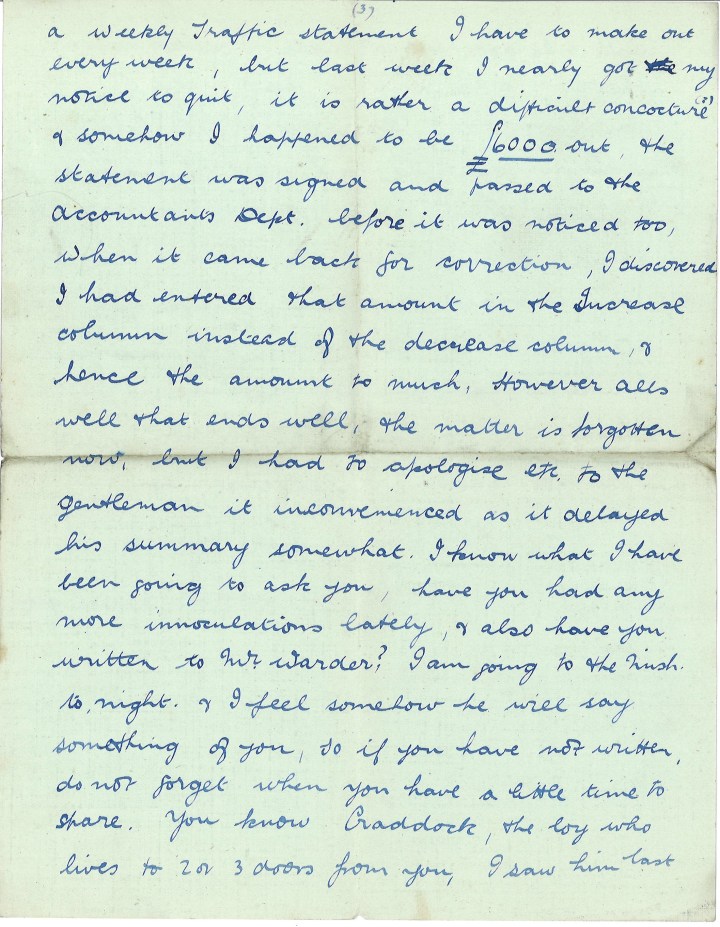 (3)
a weekly Traffic statement I have to make out
every week, but last week I nearly got the my
notice to quit, it is rather a difficult concocture (?)
& somehow I happened to be £6000 out, the
statement was signed and passed to the
accountants Dept. before it was noticed too,
When it came back for correction, I discovered
I had entered that amount in the Increase
column instead of the decrease column, &
hence the amount to much, However alls
well that ends well, the matter is forgotten
now, but I had to apologise etc. to the
gentleman it inconvenienced as it delayed
his summary somewhat. I know what I have
been going to ask you, have you had any
more innoculations lately, & also have you
written to Mr. Warder? I am going to the
to, night. & I feel somehow he will say
something of you, so if you have not written,
do not forget when you have a little time to
spare. You know Craddock, the boy who
lives to 2 or 3 doors from you, I saw him last